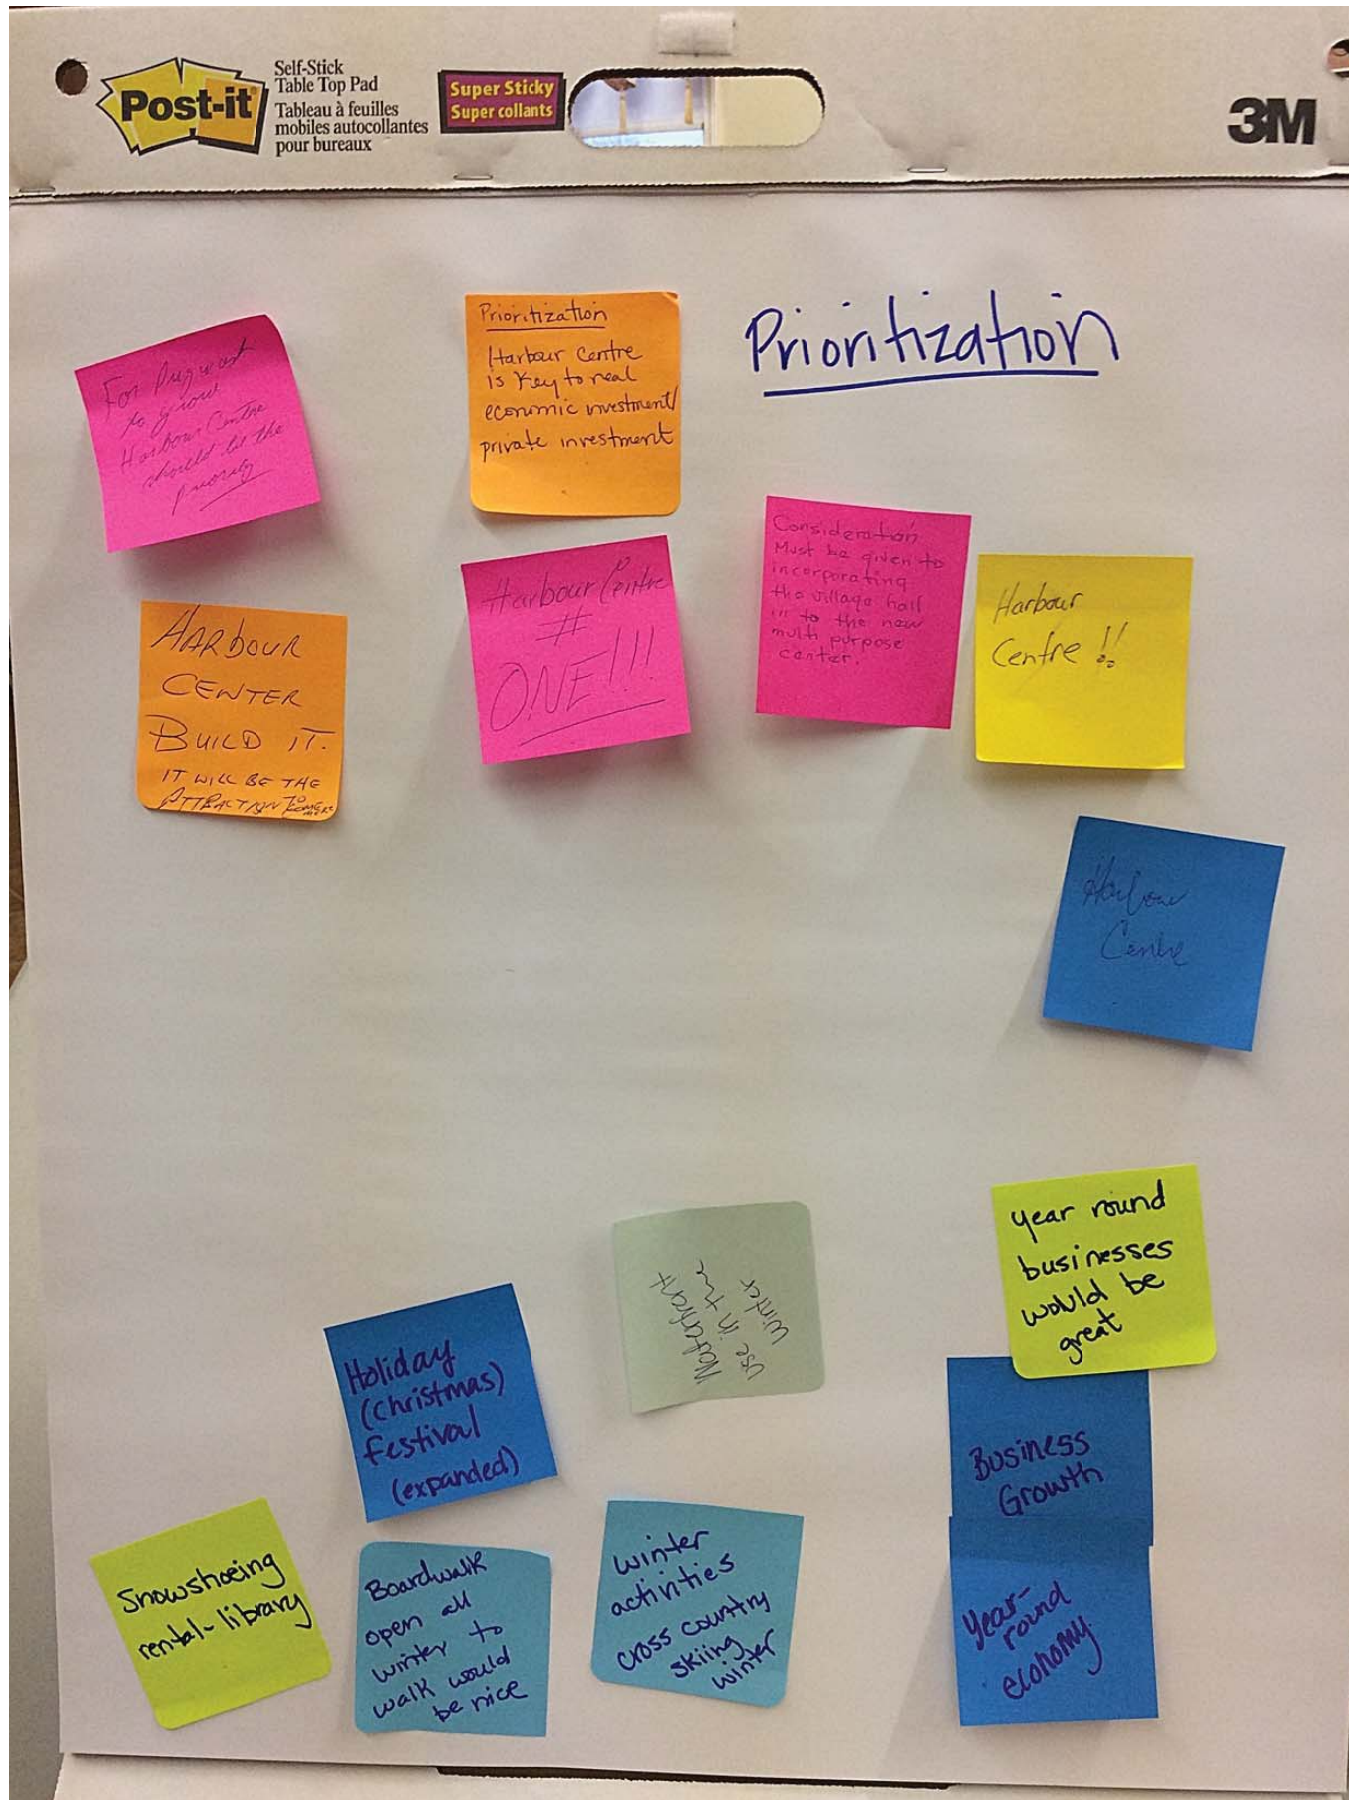 Post-it
Self-Stick
Table Top Pad
Tableau à feuilles
mobiles autocollantes
pour bureaux
Super Sticky
Super collants
3M
Prioritization
For Pugwash
to grow
Harbour Centre
should be the
priority
Prioritization
Harbour Centre
is key to real
economic investment/
private investment
HARBOUR
CENTER
BUILD IT.
IT WILL BE THE
ATTRACTION TO
Harbour Centre
#
ONE!!!
Consideration
Must be given to
incorporating
the village hall
in to the new
multi purpose
center.
Harbour
Centre !!
Harbour
Centre
year round
businesses
would be
great
Waterfront
use in the
winter
Holiday
(Christmas)
festival
(expanded)
Business
Growth
Snowshoeing
rental-library
Boardwalk
open all
winter to
walk would
be nice
winter
activities
cross country
skiing
winter
Year-
round
economy